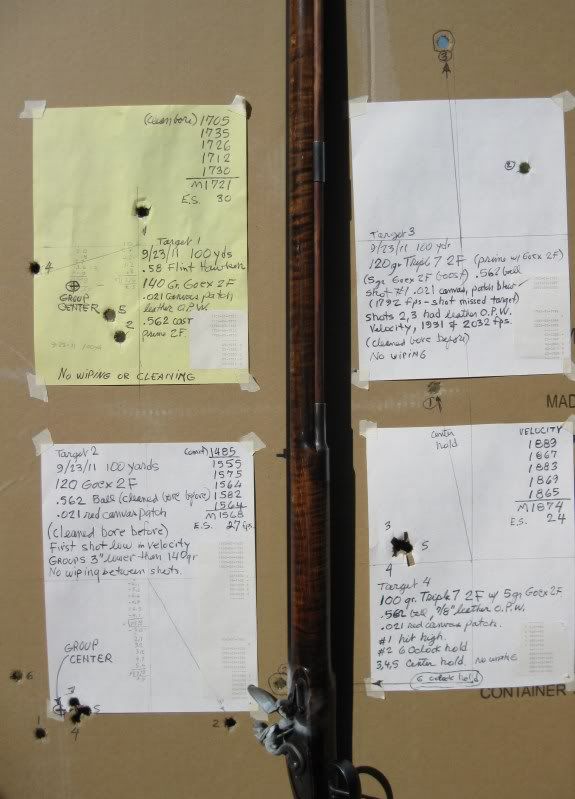 (clean bore) 1705
1735
1726
1712
1730
M 1721
E.S. 30
1
Target 1
9/23/11 100 yds
.58 Flint Hawken
140 Gr. Goex 2F
.021 canvas patch,
leather O.P.W.
.562 cast
prime 2F.
4
GROUP
CENTER
5
2
No wiping or cleaning
3
2
Target 3
9/23/11 100 yds
120 gr. Triple 7 2F (prime w/ Goex 2F)
(5gr Goex 2F .562 ball
shot #1 .021 canvas, patch blew
(1792 fps - shot missed target)
Shots 2, 3 had leather O.P.W.
Velocity, 1991 & 2032 fps.
(cleaned bore before)
No wiping
1
MAD
Target 2
9/23/11 100 yards
120 Goex 2F
.562 Ball (cleaned bore before)
.021 red canvas patch
1485
1555
1575
1564
1582
1564
M 1568
E.S. 27 fps
(cleaned bore before)
First shot low in velocity
Groups 3" lower than 140 gr
No wiping between shots.
GROUP
CENTER
6
1
3
5
4
2
center
hold
VELOCITY
1889
1867
1883
1869
1865
M 1874
E.S. 24
3
5
4
Target 4
100 gr. Triple 7 2F w/ 5 gr Goex 2F
.562 ball, 7/8" leather O.P.W.
.021 red canvas patch.
#1 hit high.
#2 6 Oclock hold
3,4,5 Center hold No wiping
6 oclock hold
CONTAINER